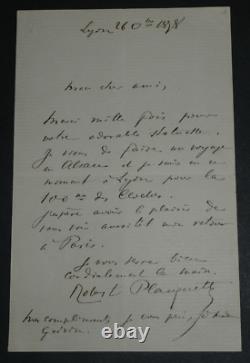 Lyon 26 8bre 1878
Mon cher ami,
Merci mille fois pour
votre adorable statuette.
Je viens de faire un voyage
en Alsace et je suis en ce
moment à Lyon pour la
100me des Cloches.
J'espère avoir le plaisir de
vous voir aussitôt mon retour
à Paris.
Je vous serre bien
cordialement la main.
Robert Planquette
Mes compliments je vous prie, à